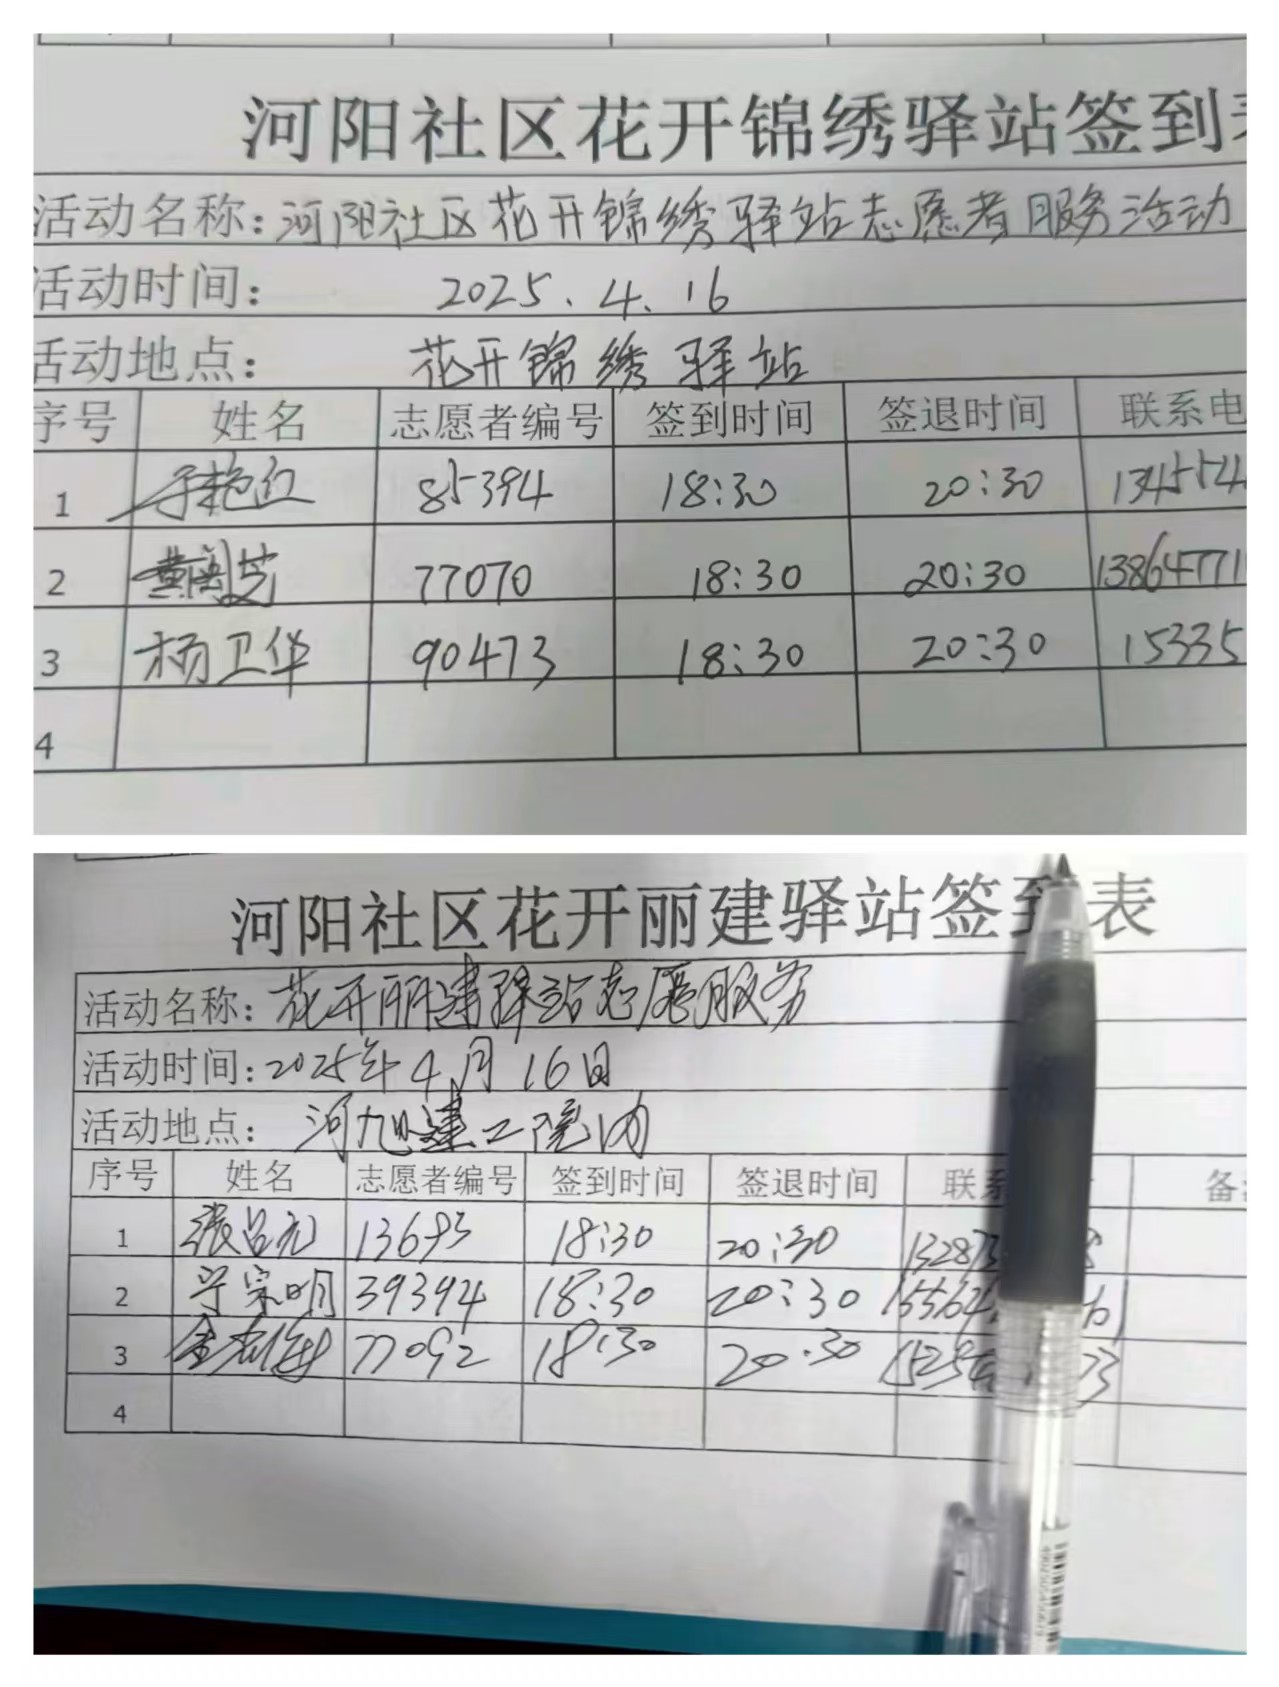 河阳社区花开锦绣驿站签到
活动名称：河阳社区花开锦绣驿站志愿者服务活动
活动时间： 2025.4.16
活动地点： 花开锦绣驿站
序号 姓名 志愿者编号 签到时间 签退时间 联系电
1 于艳红 85394 18:30 20:30 134554
2 黄阁芝 77070 18:30 20:30 13864771
3 杨卫华 90473 18:30 20:30 15335
4
河阳社区花开丽建驿站签到表
活动名称：花开丽建驿站志愿服务
活动时间：2025年4月16日
活动地点： 河旭建工院内
序号 姓名 志愿者编号 签到时间 签退时间 联系 备
1 13693 18:30 20:30 13287
2 宗明 39394 18:30 20:30 15564
3 77092 18:30 20:30 1525
4